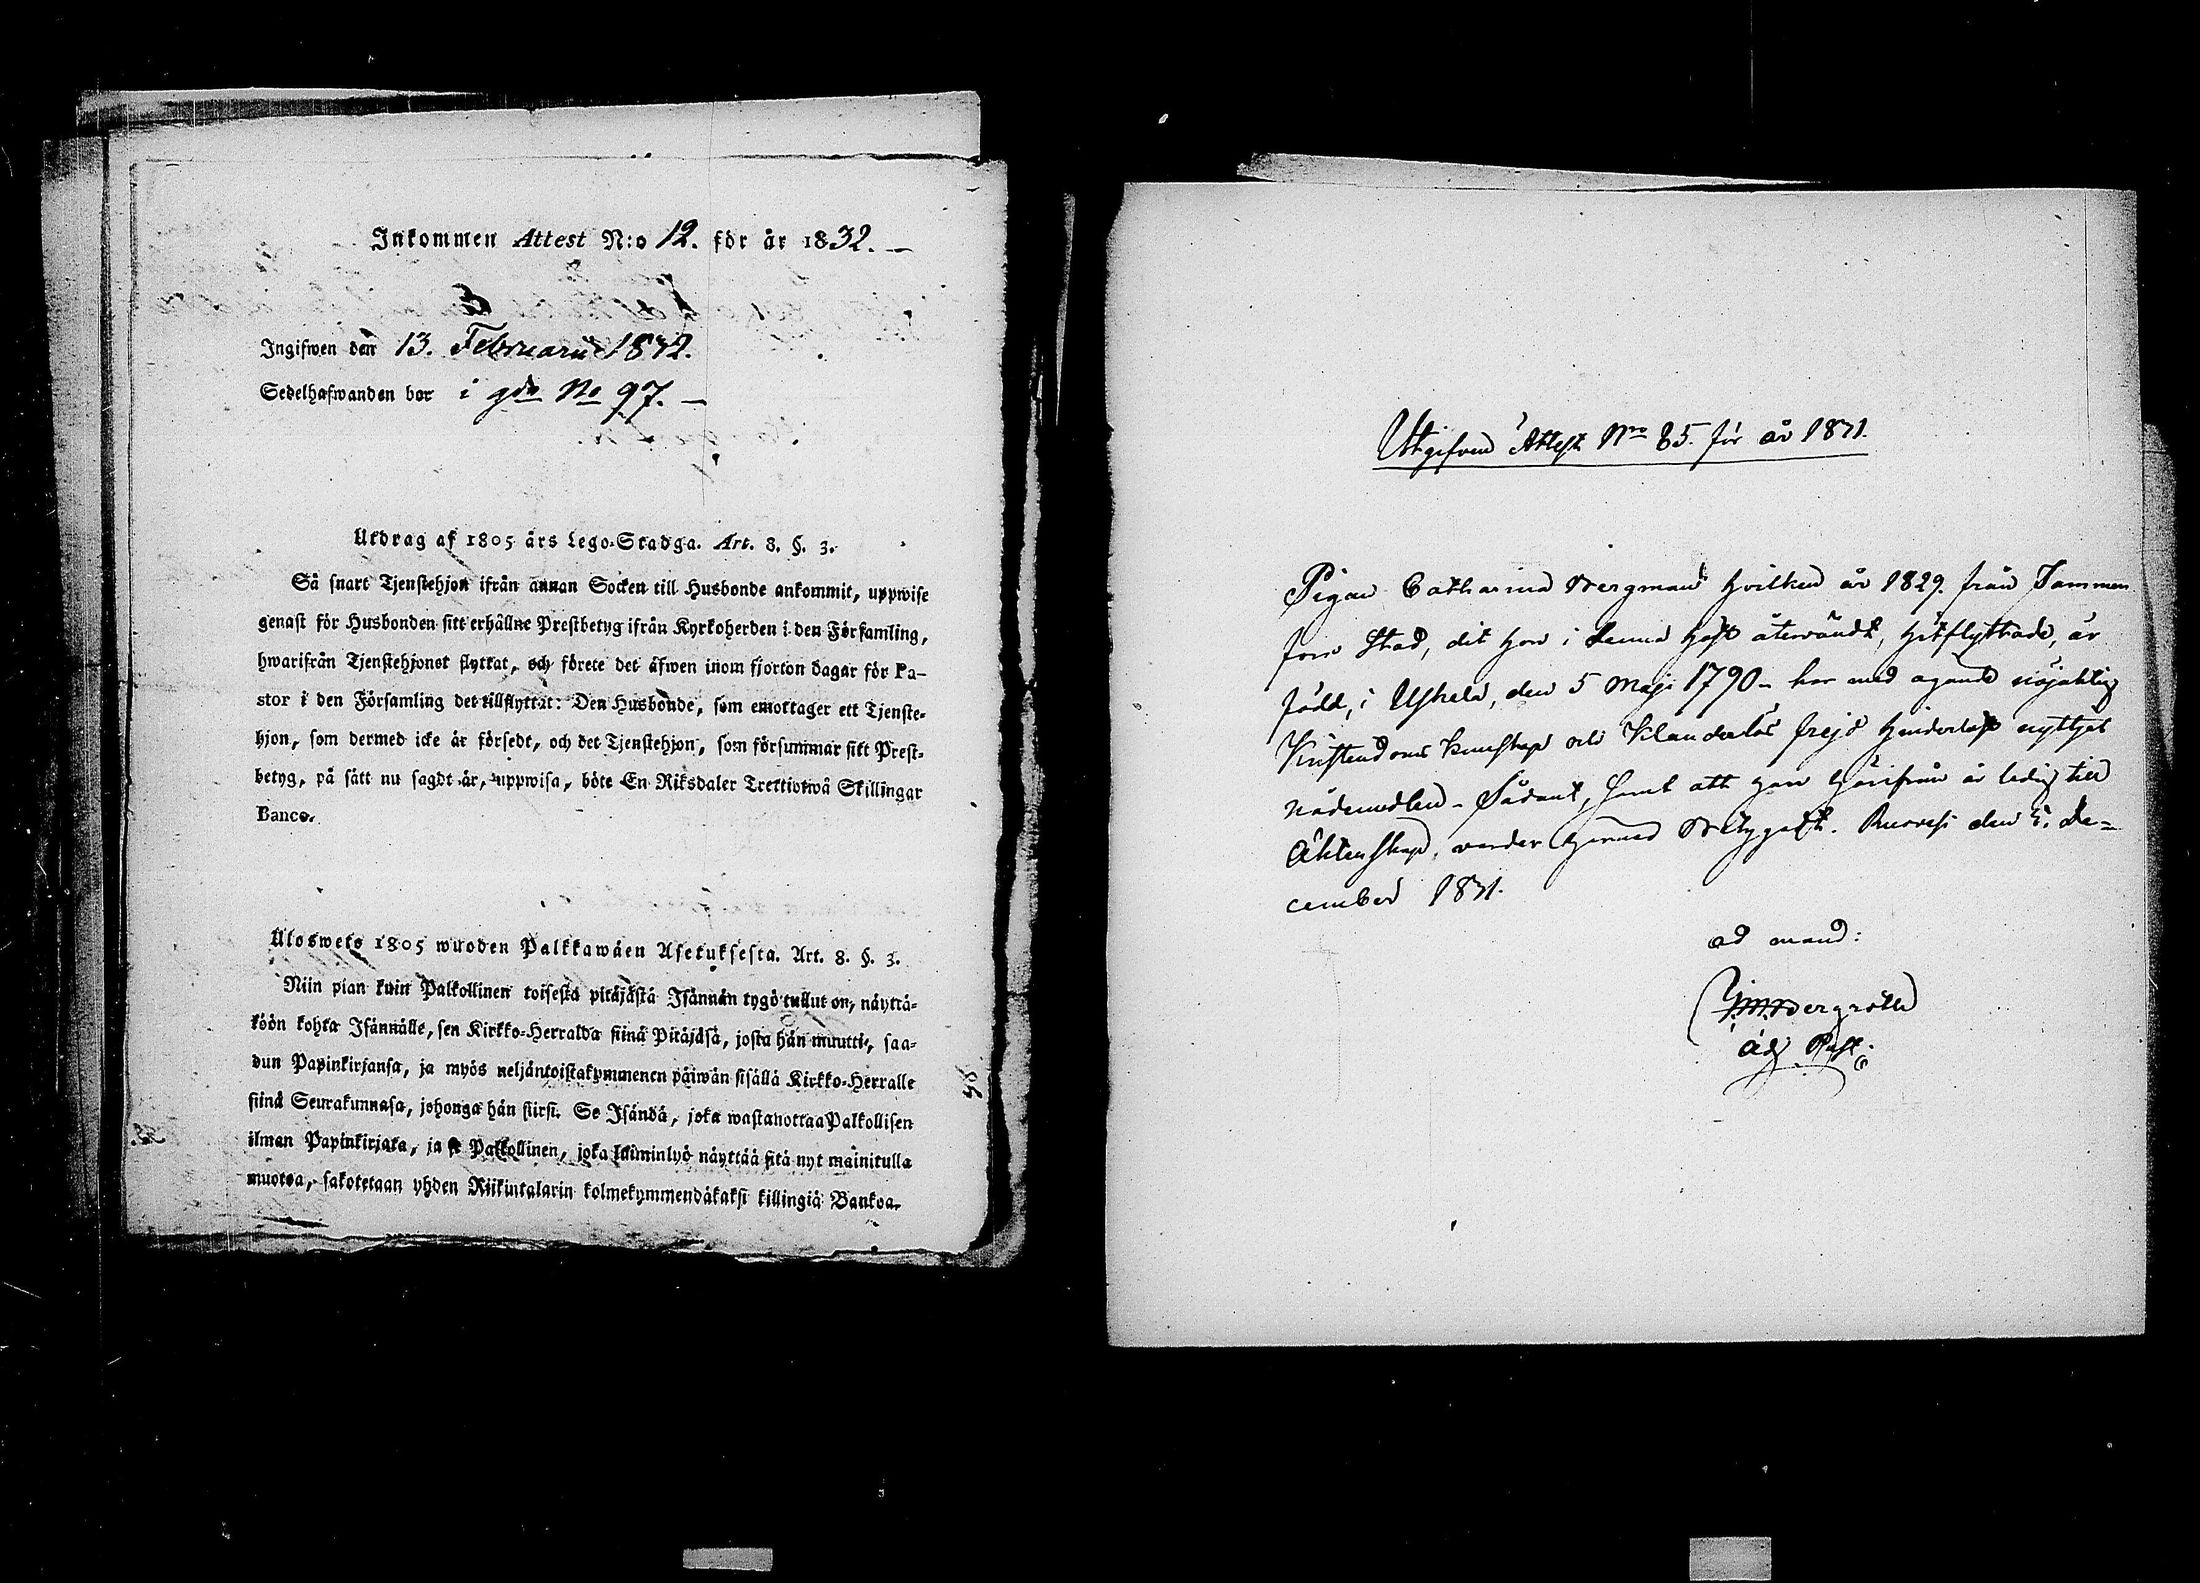 Inkommen Attest N:o 12. för år 1832. —
Ingifwen den 13. Februarii 1832.
Sedelhafwanden bor i gdn No 97. —
Utdrag af 1805 års Lego-Stadga. Art. 8. §. 3.
Så snart Tjenstehjon ifrån annan Socken till Husbonde ankommit, uppwise
genast för Husbonden sitt erhållne Prestbetyg ifrån Kyrkoherden i den Församling,
hwarifrån Tjenstehjonet flyttat, och förete det äfwen inom fjorton dagar för Pa-
stor i den Församling det tillflyttat: Den Husbonde, som emottager ett Tjenste-
hjon, som dermed icke är försedt, och det Tjenstehjon, som försummar sitt Prest-
betyg, på sätt nu sagdt är, uppwisa, böte En Riksdaler Trettiotwå Skillingar
Banco.
Ulosweto 1805 wuoden Palkkawäen Asetuksesta. Art. 8. §. 3.
Niin pian kuin Palkollinen toisesta pitäjästä Isännän tygö tullut on, näyttä-
köön kohta Isännälle, sen Kirkko-Herralda siinä Pitäjäsä, josta hän muutti, saa-
dun Papinkirjansa, ja myös neljäntoistakymmenen päiwän sisällä Kirkko-Herralle
siinä Seurakunnasa, johonga hän siirsi. Se Isändä, joka wastanottaa Palkollisen
ilman Papinkirjata, ja se Palkollinen, joka laiminlyö näyttää sitä nyt mainitulla
muotoa, sakotetaan yhden Riikintalarin kolmekymmendäkaksi killingiä Bankoa.
98
Utgifven Attest Nro 85. för år 1831.
Pigan Catharina Bergman hvilken år 1829. från Tammer
fors Stad, dit hon i denna höst återvändt, hitflyttade, är
född, i Uskela, den 5 Maji 1790 – har med ägande nöjaktig
Kristendoms kunskap och Klanderlös frejd hinderlöst nyttjat
nådemedlen – Sådant, samt att hon härifrån är ledig till
Äktenskap, varder hermed Betygadt. Ruovesi den 5. De=
cember 1831.
ad mand:
Bergroth
Adj. Past.